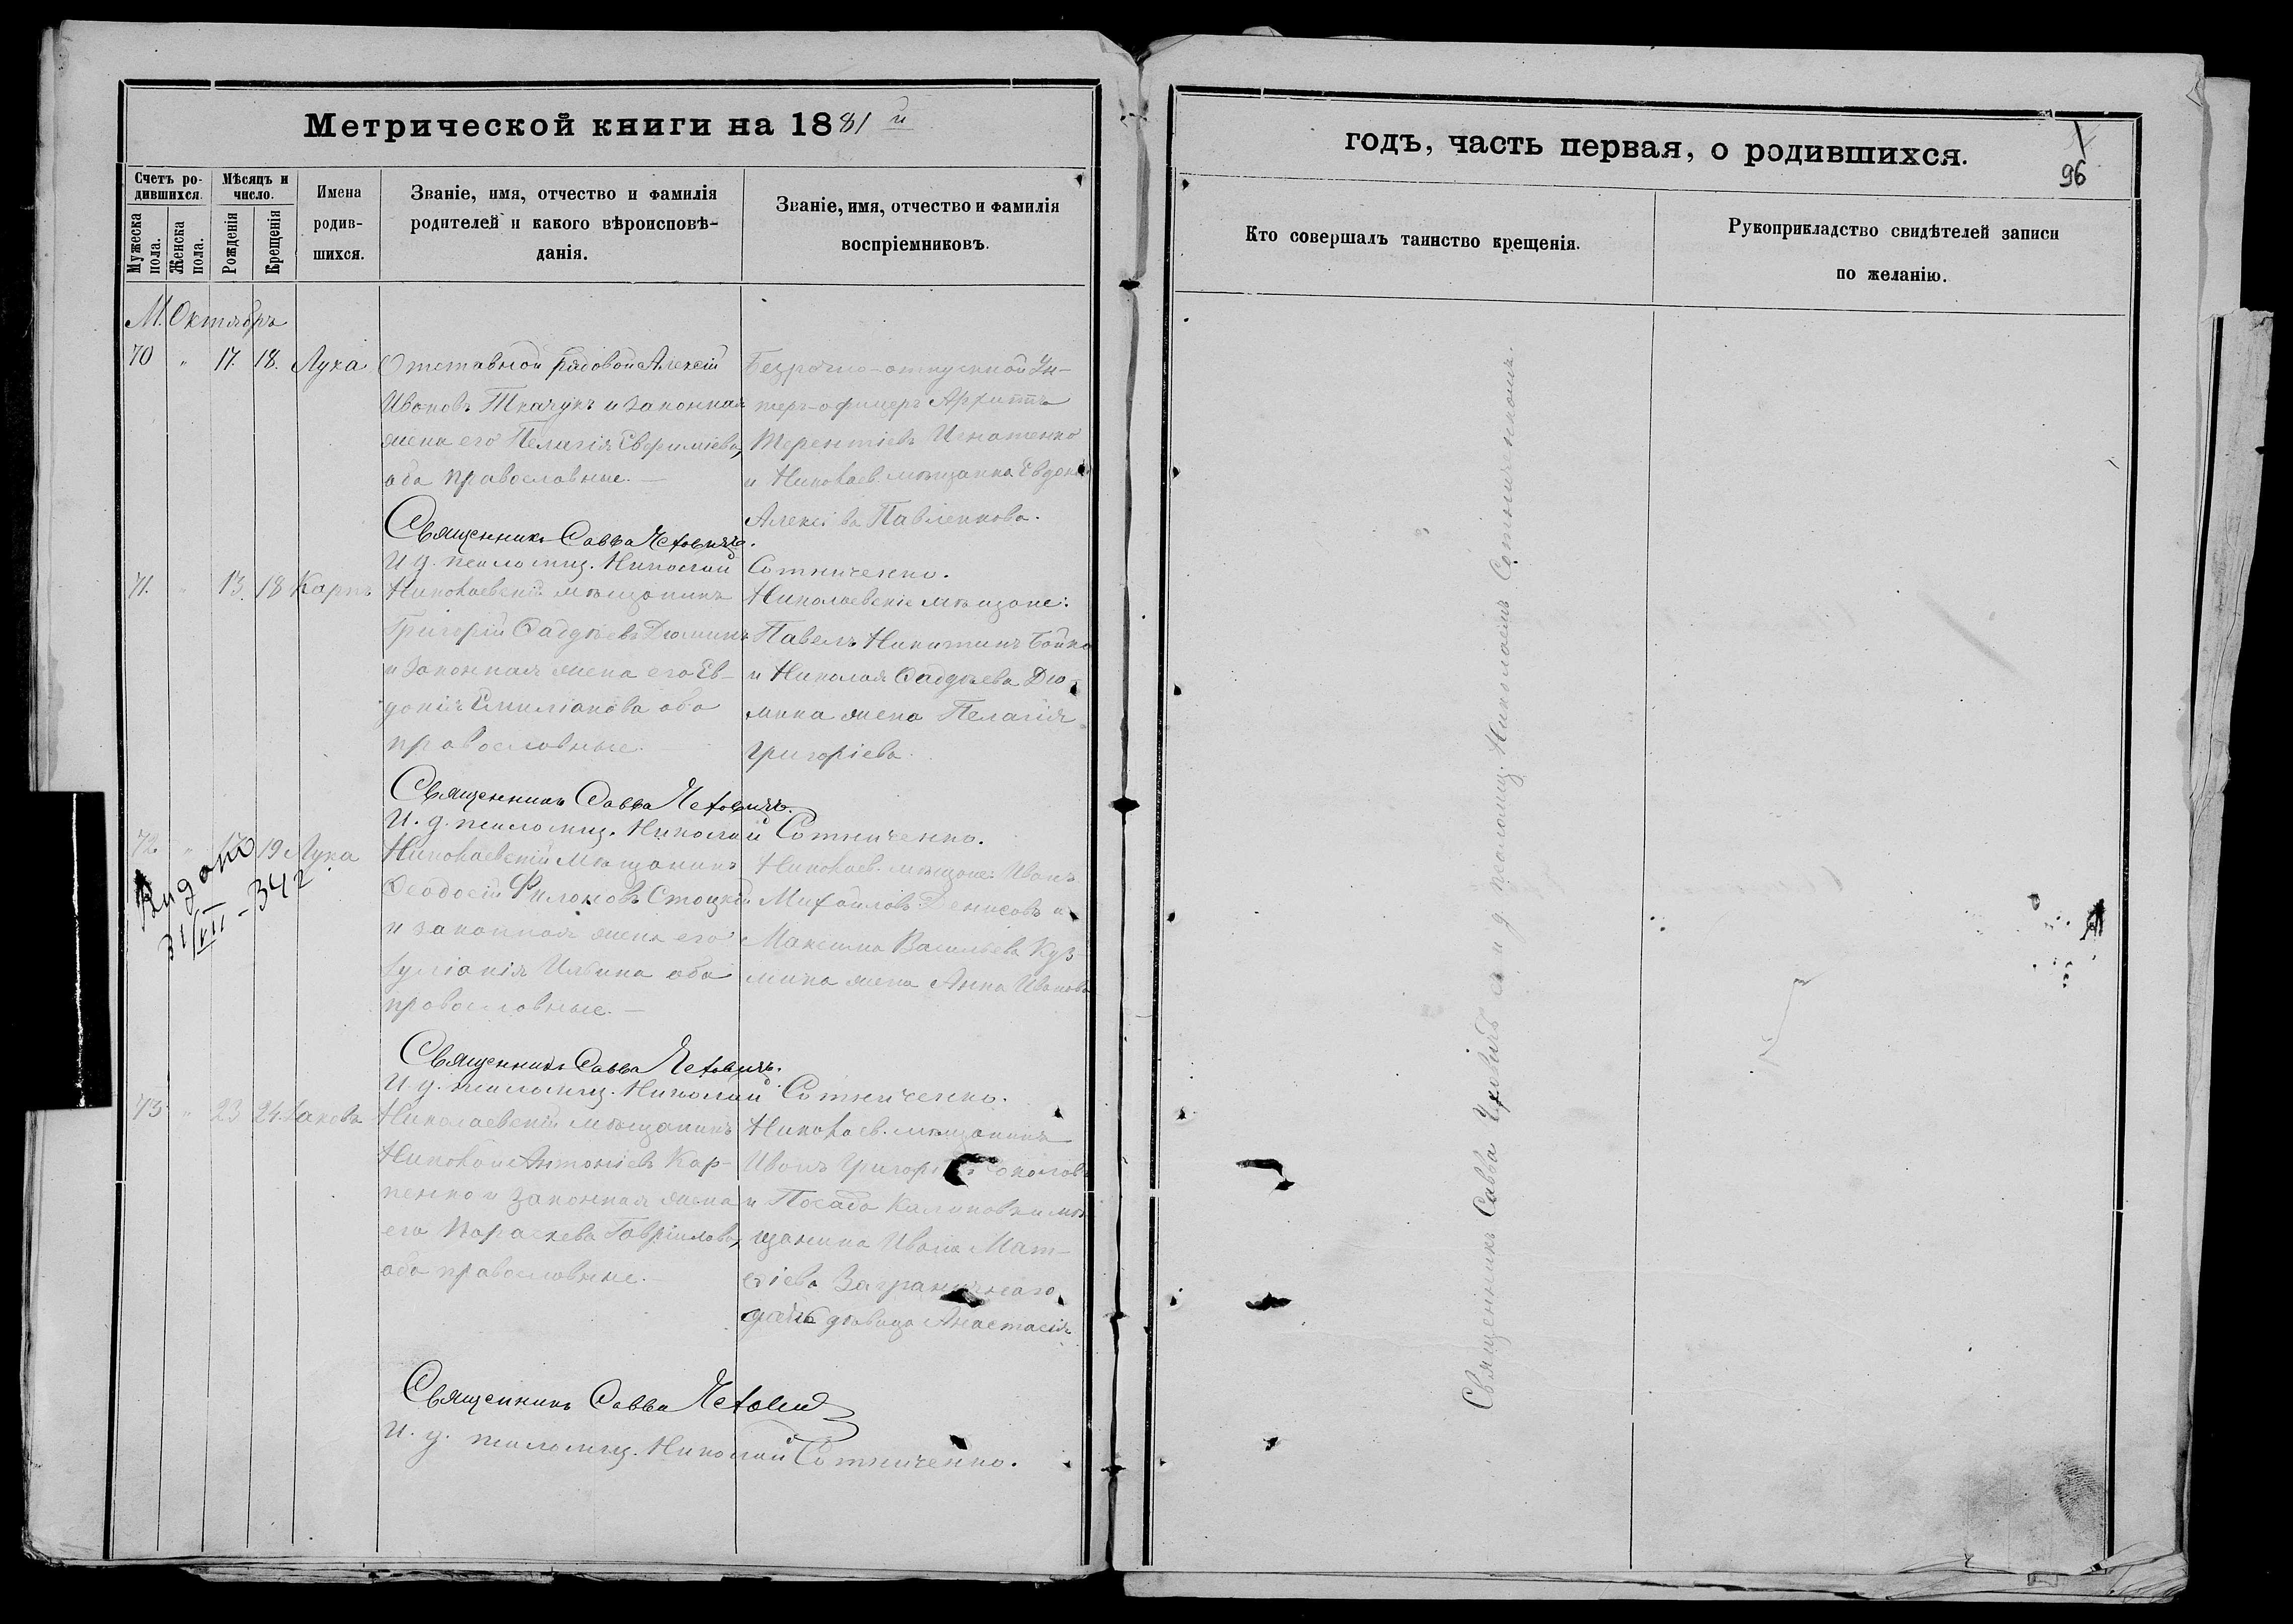 Метрической книги на 1881й
Счетъ ро-
дившихся.
Мужеска пола.
Женска пола.
Мѣсяцъ и
число.
Рожденія
Крещенія
Имена
родив-
шихся.
Званіе, имя, отчество и фамилія
родителей и какого вѣроисповѣ-
данія.
Званіе, имя, отчество и фамилія
воспріемниковъ.
М. Октябрь
70 " 17. 18. Лука
Отставной рядовой Алексій
Ивановъ Ткачукъ и законная
жена его Пелагія Евфиміева,
оба православные. —
Безрочно-отпускной Ун-
теръ-офицеръ Архиппъ
Терентіевъ Игнатенко
и Николаев. мѣщанка Евдокія
Алексіева Павленкова.
Священникъ Савва
И. д. псаломщ. Николай Сотниченко.
71. " 13. 18 Карпъ
Николаевскій мѣщанинъ
Григорій Фаддѣевъ Дюминъ
и законная жена его Ев-
докія Емиліанова оба
православные. —
Николаевскіе мѣщане:
Павелъ Никитинъ Бойко
и Николая Фаддѣева Дю-
мина жена Пелагія
Григоріева.
Священникъ Савва
И. д. псаломщ. Николай Сотниченко.
72. " 17 19 Лука
Видано
31/VII - 342
Николаевскій мѣщанинъ
Ѳеодосій Филоновъ Стоцкій
и законная жена его
Іуліанія Ильина оба
православные. —
Николаев. мѣщане: Иванъ
Михайловъ Денисовъ и
Максима Васильева Куз-
мина жена Анна Иванова
Священникъ Савва
И. д. псаломщ. Николай Сотниченко.
73. " 23 24. Іаковъ
Николаевскій мѣщанинъ
Николай Антоніевъ Кар-
пенко и законная жена
его Параскева Гавріилова,
оба православные. —
Николаев. мѣщанинъ
Иванъ
и Посада Калиновки мѣ-
щанина Ивана Мат-
ѳіева Заграничнаго
дочь дѣвица Анастасія
Священникъ Савва
И. д. псаломщ. Николай Сотниченко.
годъ, часть первая, о родившихся.
96
Кто совершалъ таинство крещенія.
Рукоприкладство свидѣтелей записи
по желанію.
Священникъ Савва съ и. д. псаломщ. Николаемъ Сотниченкомъ.